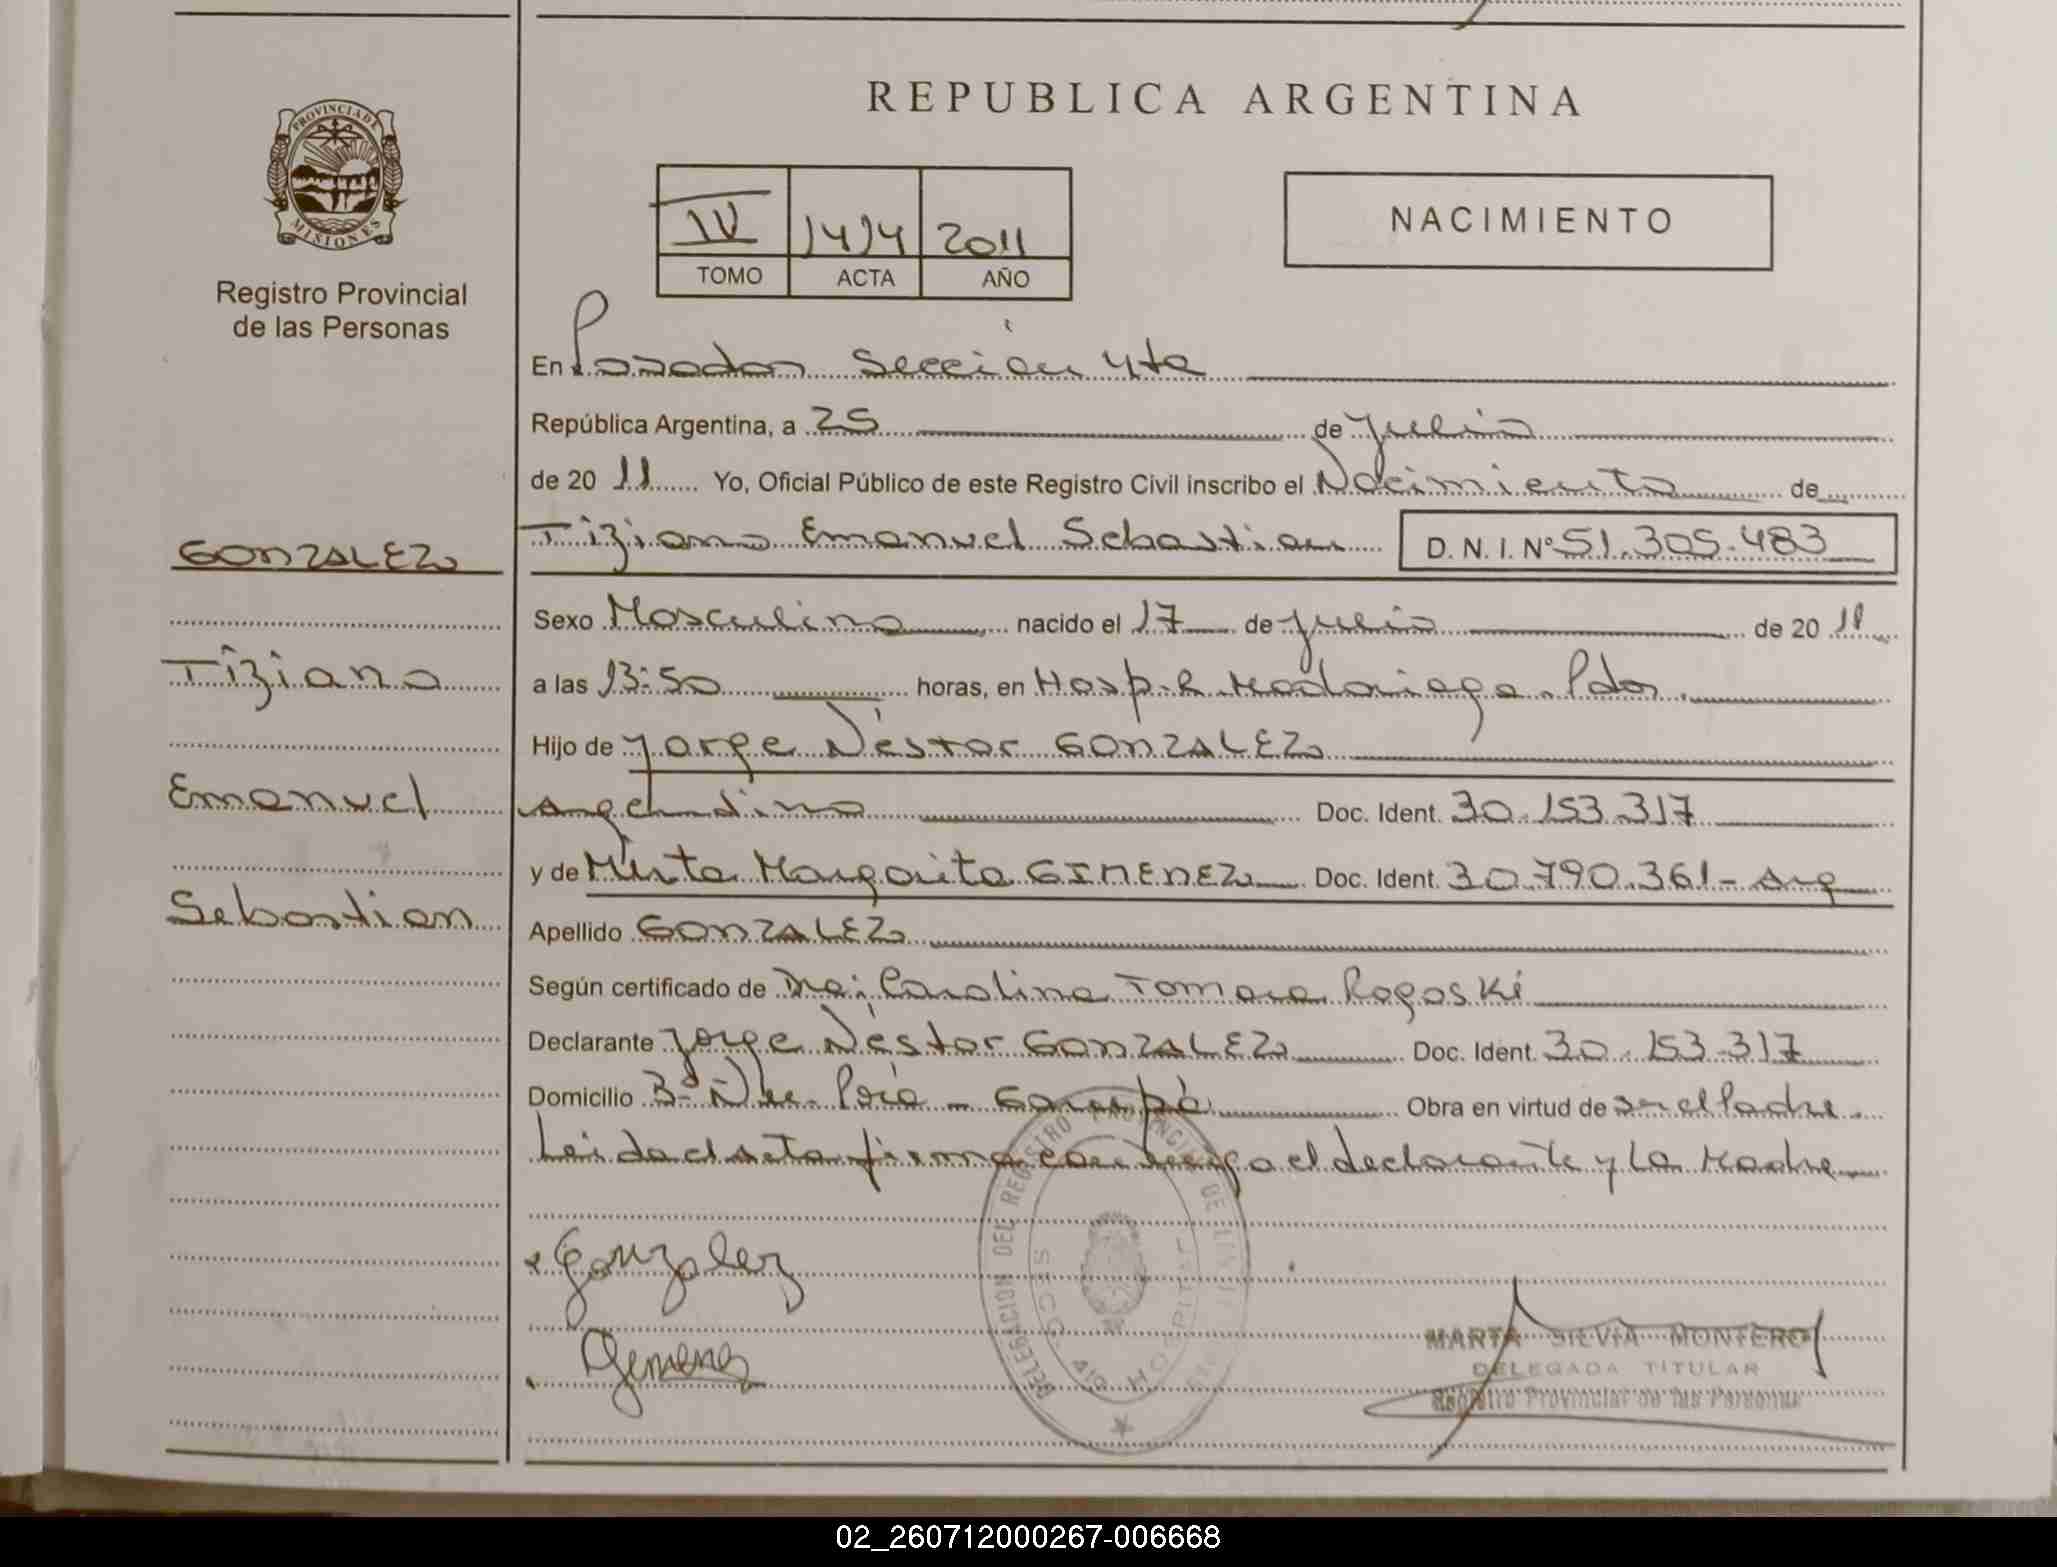 REPUBLICA ARGENTINA
PROVINCIA DE
MISIONES
Registro Provincial
de las Personas
IV 1414 2011
TOMO ACTA AÑO
NACIMIENTO
En Posadas Sección 4ta
República Argentina, a 25 de Julio
de 20 11 Yo, Oficial Público de este Registro Civil inscribo el Nacimiento de
Tiziano Emanuel Sebastian D.N.I. Nº 51.305.483
GONZALEZ
Tiziano
Emanuel
Sebastian
Sexo Masculino nacido el 17 de Julio de 20 11
a las 13:50 horas, en Hosp. R. Madariaga. Pdas.
Hijo de Jorge Néstor GONZALEZ
Argentino Doc. Ident. 30.153.317
y de Mirta Margarita GIMENEZ Doc. Ident. 30.790.361 - Arg
Apellido GONZALEZ
Según certificado de Dra: Carolina Tamara Rogoski
Declarante Jorge Néstor GONZALEZ Doc. Ident. 30.153.317
Domicilio - Garupá Obra en virtud de ser el Padre.
Leida el acta firma conmigo el declarante y La Madre
Gonzalez
Gimenez
DELEGACION DEL REGISTRO PROVINCIAL DE LAS
SECC. 4ta HOSPITAL
MARTA SILVIA MONTERO
DELEGADA TITULAR
Registro Provincial de las Personas
02_260712000267-006668